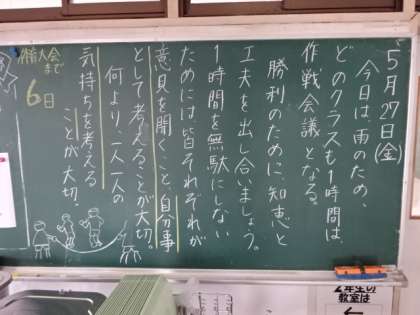 5月27日(金)
今日は、雨のため、
どのクラスも1時間は、
作戦会議となる。
勝利のために、知恵と
工夫を出し合いましょう。
1時間を無駄にしない
ためには、皆それぞれが
意見を聞くこと、自分事
として考えることが大切。
何より、一人一人の
気持ちを考える
ことが大切。
大会まで
6日
2年生の
教室は